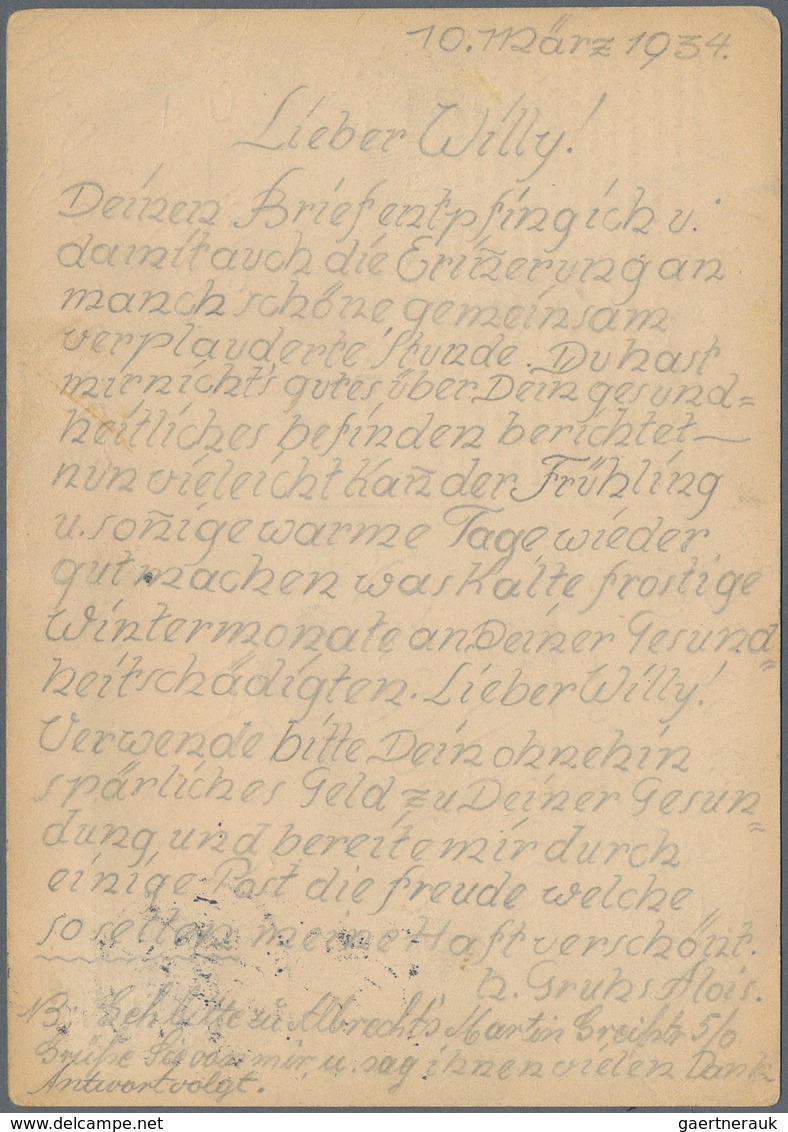 10. März 1934.
Lieber Willy!
Deinen Brief entpfing ich u.
damit auch die Erin̄erung an
manch schöne gemeinsam
verplauderte Stunde. Du hast
mir nicht's gutes über Dein gesund=
heitliches befinden berichtet —
nun vieleicht kan̄ der Frühling
u. son̄ige warme Tage wieder
gut machen was kalte frostige
Wintermonate an Deiner Gesund=
heit schädigten. Lieber Willy!
Verwende bitte Dein ohnehin
spärliches Geld zu Deiner Gesun=
dung und bereite mir durch
einige Post die freude welche
so selten meine Haft verschönt.
h. Gruhs Alois.
NB. Geh bitte zu Albrecht's Martin Greifstr 5/0
Grüße Sie von mir, u. sag ihnen vielen Dank
Antwort volgt.
gaertnerauk